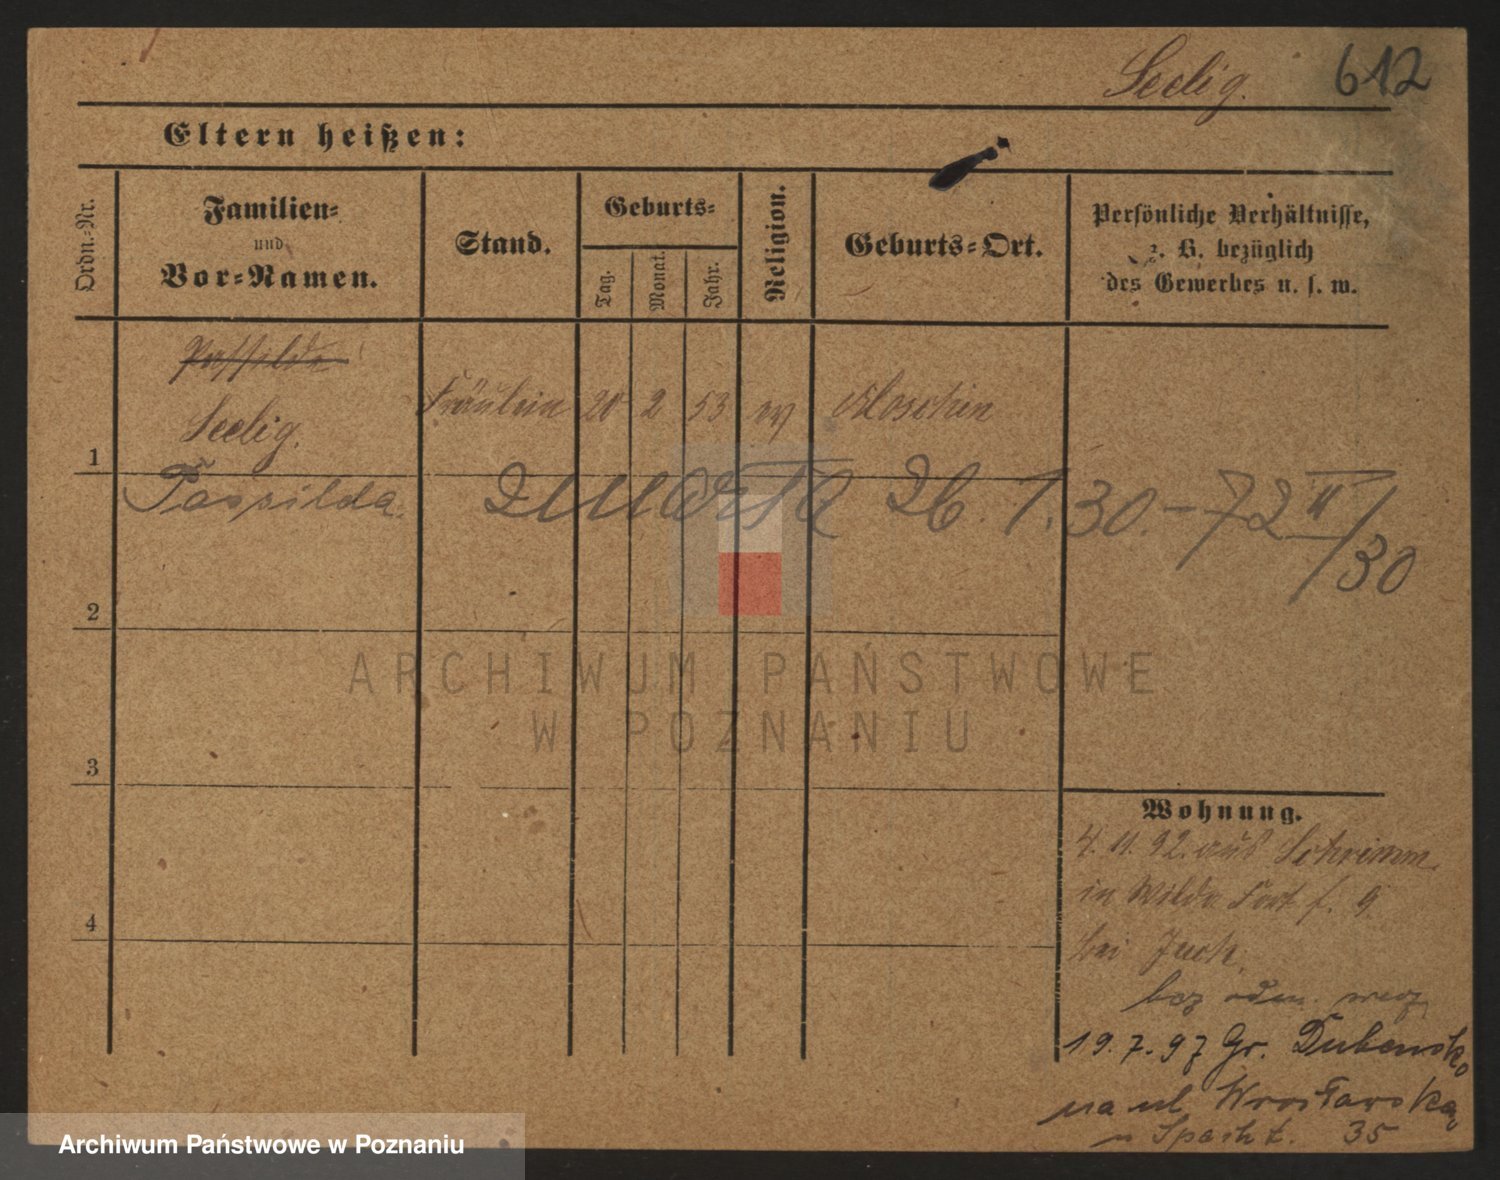 Seelig. 612
Eltern heißen:
Ordn.-Nr.
Familien-
und
Vor-Namen.
Stand.
Geburts-
Tag.
Monat.
Jahr.
Religion.
Geburts-Ort.
Persönliche Verhältnisse,
z. B. bezüglich
des Gewerbes u. s. w.
Seelig.
Fräulein 20 2 53 ev Moschin
1
Tassilda. zmarła 26. 1. 30. - 72 II/30
2
ARCHIWUM PAŃSTWOWE
W POZNANIU
3
Wohnung.
4. 11. 92. aus Schrimm
in Wilda f. 9
4
bei
19. 7. 97 Gr. Dubensko
na ul Wrocławska
u 35
Archiwum Państwowe w Poznaniu